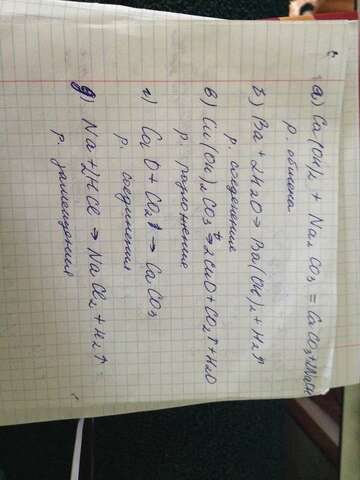 а) Ca(OH)₂ + Na₂CO₃ = CaCO₃ + NaOH
р. обмена
б) Ba + 2H₂O → Ba(OH)₂ + H₂↑
р. соединение
в) Cu(OH)₂CO₃ t→ 2CuO + CO₂↑ + H₂O
р. разложение
г) CaO + CO₂↑ → CaCO₃
р. соединения
д) Na + 2HCl → NaCl₂ + H₂↑
р. замещения